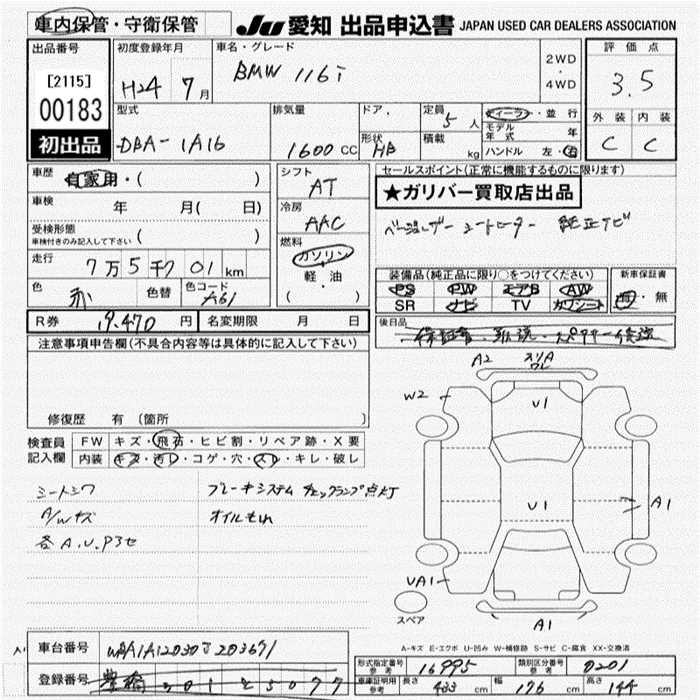 車内保管・守衛保管
JU 愛知 出品申込書 JAPAN USED CAR DEALERS ASSOCIATION
出品番号
[2115]
00183
初出品
初度登録年月
H24 7月
車名・グレード
BMW 116i
2WD
・
4WD
評価点
3.5
外装 内装
C C
型式
DBA-1A16
排気量
1600 CC
ドア・
形状
HB
定員 5 人
積載 kg
ディーラー・並行
モデル年式 年
ハンドル 左・右
車歴 自家用・( )
車検 年 月( 日)
受検形態
車検付きのみ記入して下さい ( )
走行
7万5千701km
色
赤 色替
色コード
A61
シフト
AT
冷房
AAC
燃料
ガソリン
・
軽・油
・
( )
セールスポイント(正常に機能するものに限ります)
★ガリバー買取店出品
ベージュレザー シートヒーター 純正ナビ
装備品(純正品に限り○をつけてください)
PS PW エアB AW
SR ナビ TV カワシート
新車保証書
有・無
R券 9.470 円
名変期限 月 日
後日品
保証書・取説・スペアキー後送
注意事項申告欄(不具合内容等は具体的に記入して下さい)
修復歴 有 (箇所 )
検査員記入欄
FW キズ・飛石・ヒビ割・リペア跡・X要
内装 キズ・汚レ・コゲ・穴・スレ・キレ・破レ
シートシワ
A/Wキズ
各A.U.Pヨセ
ブレーキシステム チェックランプ点灯
オイルもれ
A2 スリA
ワレ
W2
U1
U1
A1
UA1
A1
スペア
A-キズ E-エクボ U-凹み W-補修跡 S-サビ C-腐食 XX-交換済
車台番号 WBA1A12030J203671
登録番号 豊橋 301 そ 5077
形式指定番号
参考
16995
類別区分番号
参考
0201
車庫証明用
参考
長さ 433 cm
幅 176 cm
高さ 144 cm